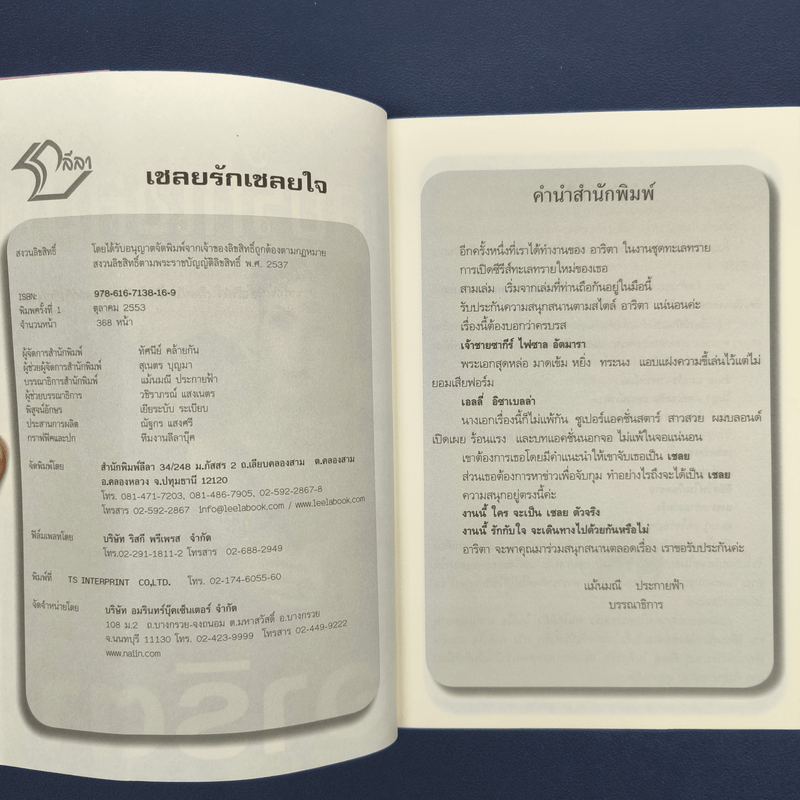 ลีลา
เชลยรักเชลยใจ
สงวนลิขสิทธิ์ โดยได้รับอนุญาตจัดพิมพ์จากเจ้าของลิขสิทธิ์ถูกต้องตามกฎหมาย
สงวนลิขสิทธิ์ตามพระราชบัญญัติลิขสิทธิ์ พ.ศ. 2537
ISBN: 978-616-7138-16-9
พิมพ์ครั้งที่ 1 ตุลาคม 2553
จำนวนหน้า 368 หน้า
ผู้จัดการสำนักพิมพ์ ทัศนีย์ คล้ายกัน
ผู้ช่วยผู้จัดการสำนักพิมพ์ สุเนตร บุญมา
บรรณาธิการสำนักพิมพ์ แม้นมณี ประกายฟ้า
ผู้ช่วยบรรณาธิการ วชิราภรณ์ แสงเนตร
พิสูจน์อักษร เยียระบับ ระเบียบ
ประสานการผลิต ณัฐกร แสงศรี
กราฟฟิคและปก ทีมงานลีลาบุ๊ค
จัดพิมพ์โดย สำนักพิมพ์ลีลา 34/248 ม.ภัสสร 2 ถ.เลียบคลองสาม ต.คลองสาม
อ.คลองหลวง จ.ปทุมธานี 12120
โทร. 081-471-7203, 081-486-7905, 02-592-2867-8
โทรสาร 02-592-2867 Info@leelabook.com / www.leelabook.com
ฟิล์มเพลทโดย บริษัท ริสกี พรีเพรส จำกัด
โทร.02-291-1811-2 โทรสาร 02-688-2949
พิมพ์ที่ TS INTERPRINT CO.,LTD. โทร. 02-174-6055-60
จัดจำหน่ายโดย บริษัท อมรินทร์บุ๊คเซ็นเตอร์ จำกัด
108 ม.2 ถ.บางกรวย-จงถนอม ต.มหาสวัสดิ์ อ.บางกรวย
จ.นนทบุรี 11130 โทร. 02-423-9999 โทรสาร 02-449-9222
www.naiin.com
คำนำสำนักพิมพ์
อีกครั้งหนึ่งที่เราได้ทำงานของ อาริตา ในงานชุดทะเลทราย
การเปิดซีรีส์ทะเลทรายใหม่ของเธอ
สามเล่ม เริ่มจากเล่มที่ท่านถือกันอยู่ในมือนี้
รับประกันความสนุกสนานตามสไตล์ อาริตา แน่นอนค่ะ
เรื่องนี้ต้องบอกว่าครบรส
เจ้าชายซากีร์ ไฟซาล อัตมารา
พระเอกสุดหล่อ มาดเข้ม หยิ่ง ทระนง แอบแฝงความขี้เล่นไว้แต่ไม่
ยอมเสียฟอร์ม
เอลลี่ อิซาเบลล่า
นางเอกเรื่องนี้ก็ไม่แพ้กัน ซูเปอร์แอคชั่นสตาร์ สาวสวย ผมบลอนด์
เปิดเผย ร้อนแรง และบทแอคชั่นนอกจอ ไม่แพ้ในจอแน่นอน
เขาต้องการเธอโดยมีคำแนะนำให้เขาจับเธอเป็น เชลย
ส่วนเธอต้องการหาข่าวเพื่อจับกุม ทำอย่างไรถึงจะได้เป็น เชลย
ความสนุกอยู่ตรงนี้ค่ะ
งานนี้ ใคร จะเป็น เชลย ตัวจริง
งานนี้ รักกับใจ จะเดินทางไปด้วยกันหรือไม่
อาริตา จะพาคุณมาร่วมสนุกสนานตลอดเรื่อง เราขอรับประกันค่ะ
แม้นมณี ประกายฟ้า
บรรณาธิการ